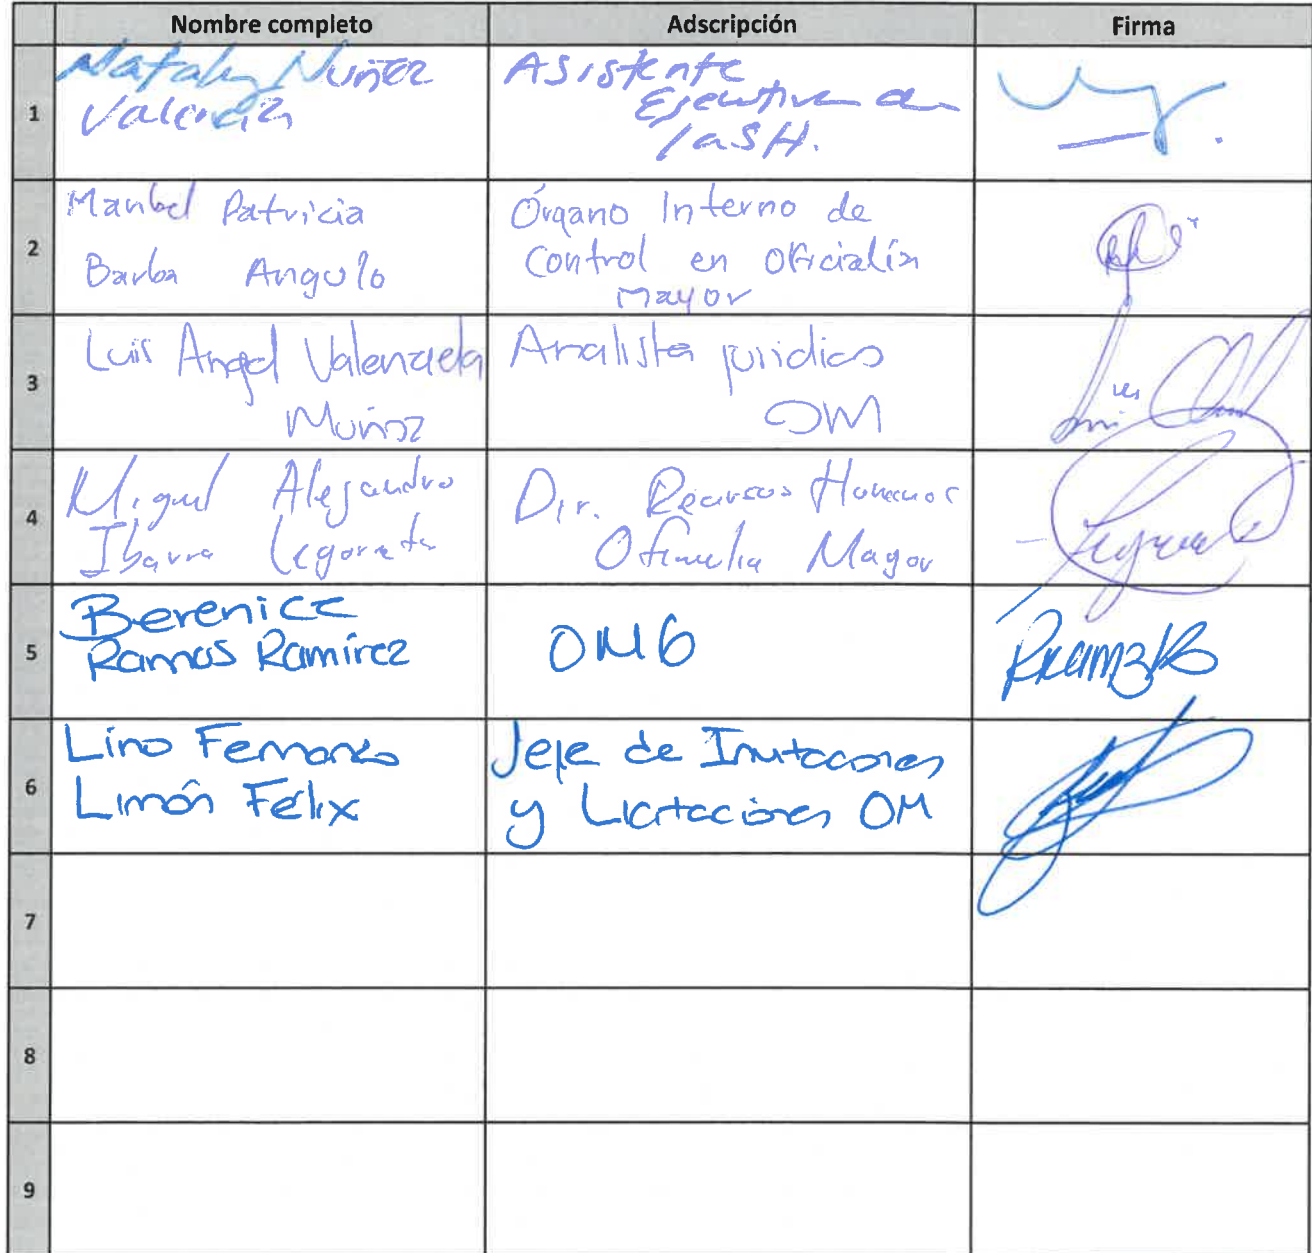 Nombre completo Adscripción Firma
1
Nataly Nuñez
Valencia
Asistente
Ejecutiva de
la SH.
2
Maribel Patricia
Barba Angulo
Órgano Interno de
Control en Oficialía
Mayor
3
Luis Angel Valenzuela
Muñoz
Analista juridico
OM
4
Miguel Alejandro
Ibarra Legorreta
Dir. Recursos Humanos
Oficialia Mayor
5
Berenice
Ramos Ramírez
OMG
6
Lino Fernando
Limón Félix
Jefe de Invitaciones
y Licitaciones OM
7
8
9